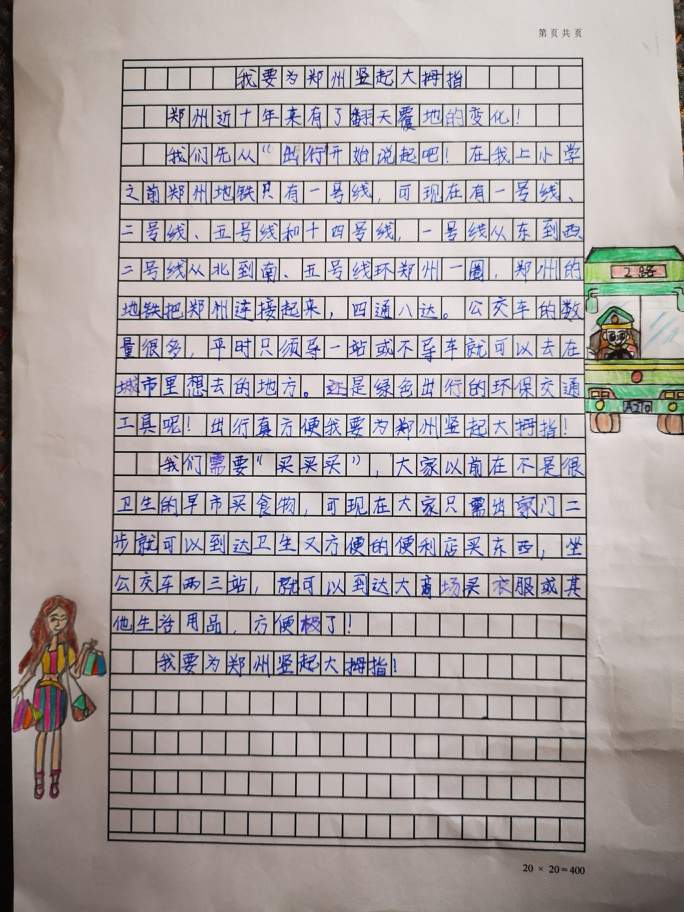 第 页 共 页
我要为郑州竖起大拇指
郑州近十年来有了翻天覆地的变化！
我们先从“出行”开始说起吧！在我上小学
之前郑州地铁只有一号线，可现在有一号线、
二号线、五号线和十四号线，一号线从东到西
二号线从北到南、五号线环郑州一圈，郑州的
地铁把郑州连接起来，四通八达。公交车的数
量很多，平时只须导一站或不导车就可以去在
城市里想去的地方。还是绿色出行的环保交通
工具呢！出行真方便我要为郑州竖起大拇指！
我们需要“买买买”，大家以前在不是很
卫生的早市买食物，可现在大家只需出家门二
步就可以到达卫生又方便的便利店买东西，坐
公交车两三站，就可以到达大商场买衣服或其
他生活用品，方便极了！
我要为郑州竖起大拇指！
2路
A210
20 × 20 = 400